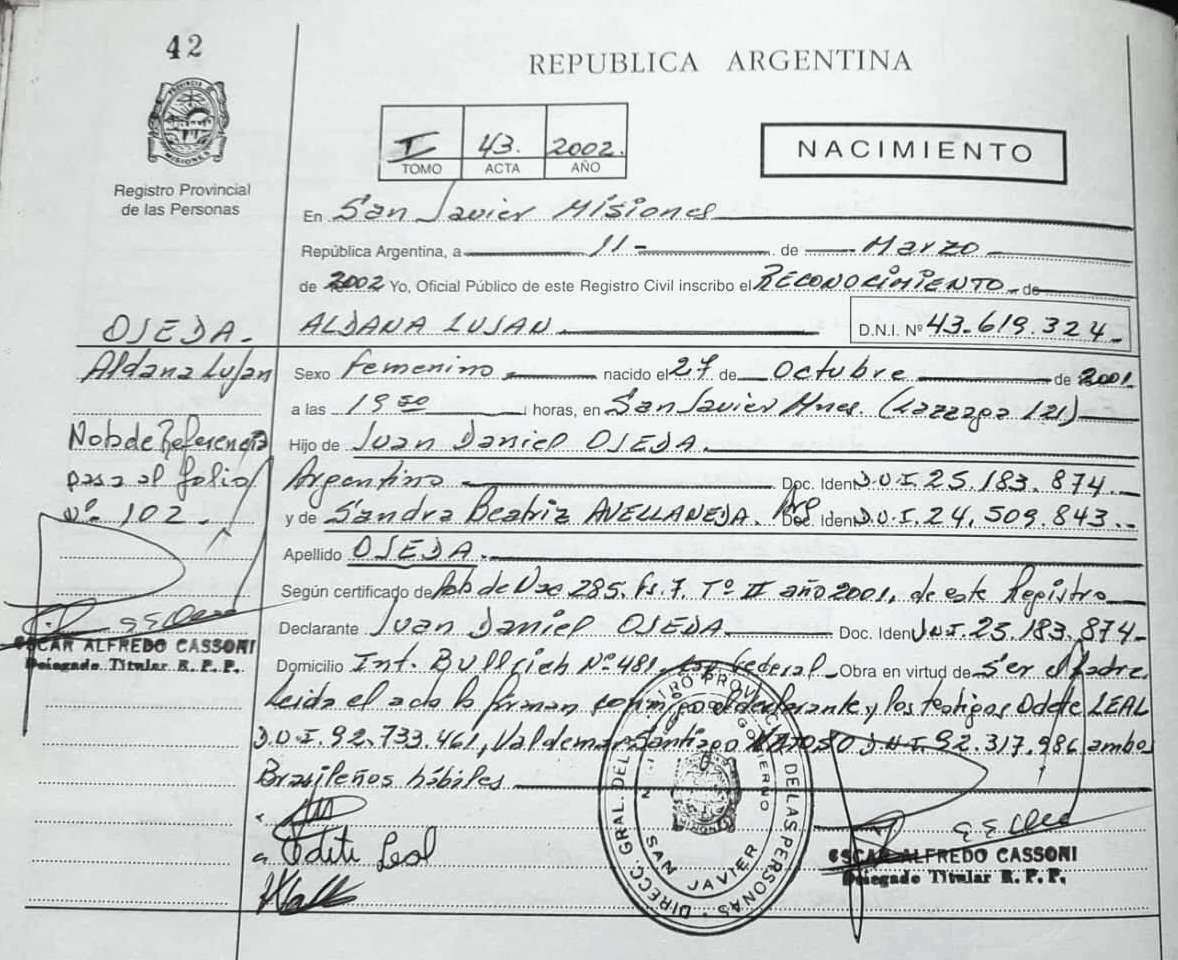 42
REPUBLICA ARGENTINA
PROVINCIA DE MISIONES
Registro Provincial
de las Personas
I 43. 2002.
TOMO ACTA AÑO
NACIMIENTO
En San Javier Misiones
República Argentina, a 11- de Marzo
de 2002 Yo, Oficial Público de este Registro Civil inscribo el RECONOCIMIENTO de
ALDANA LUJAN D.N.I. Nº 43.619.324
OJEDA.
Aldana Lujan
Nota de Referencia
pasa al folio
Nº 102.
OSCAR ALFREDO CASSONI
Delegado Titular R. P. P.
Sexo Femenino nacido el 27 de Octubre de 2001
a las 19 50 horas, en San Javier Mnes. ( 121)
Hijo de Juan Daniel OJEDA.
Argentino Doc. Iden D.N.I. 25.183.874
y de Sandra Beatriz AVELLANEDA. Arg Doc. Iden D.N.I. 24.509.843.-
Apellido OJEDA.
Según certificado de 285. Fs. 7 Tº II año 2001, de este Registro
Declarante Juan Daniel OJEDA. Doc. Iden D.N.I. 25.183.874-
Domicilio Int. Bullrich Nº 481 Cap Federal Obra en virtud de Ser el Padre
Leida el acta la firman conmigo el declarante y los testigos Odete LEAL
D.N.I. 92.733.461, Valdemar Santiago D.N.I. 92.317.986 ambos
Brasileños hábiles
Odete Leal
DIRECC. GRAL. DEL REGISTRO PROVINC. DE LAS PERSONAS
SAN JAVIER
OSCAR ALFREDO CASSONI
Delegado Titular R. P. P.